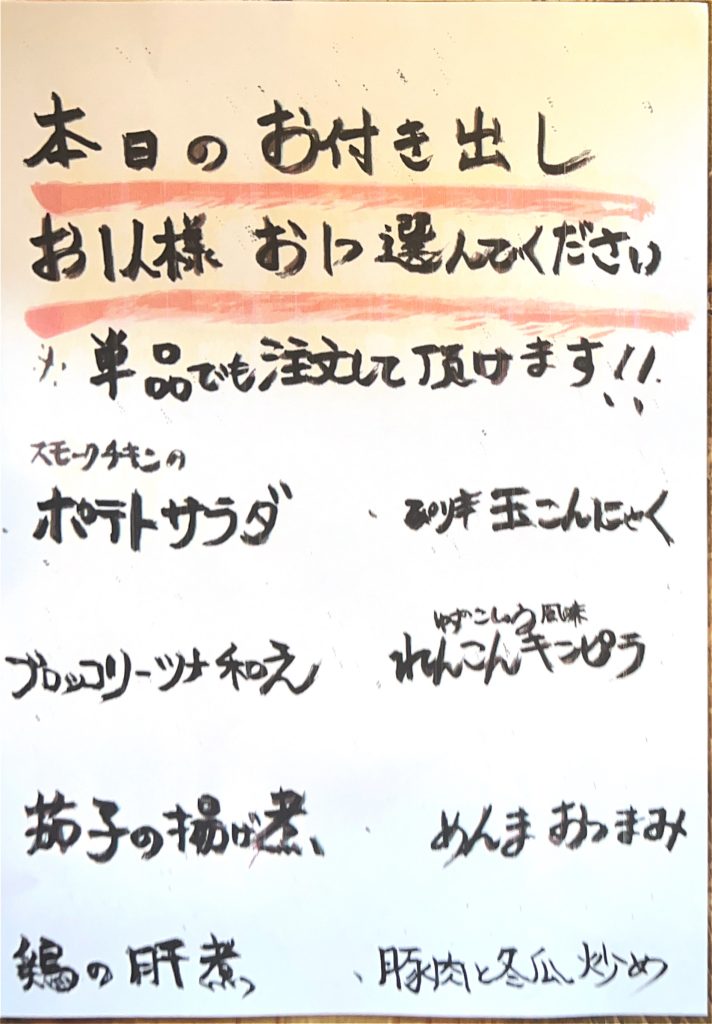 本日のお付き出し
お1人様 お1つ選んでください
※単品でも注文して頂けます!!
スモークチキンの
ポテトサラダ
ピリ辛 玉こんにゃく
ブロッコリーツナ和え
ゆずこしょう風味
れんこんキンピラ
茄子の揚げ煮
めんまおつまみ
鶏の肝煮
豚肉と冬瓜炒め